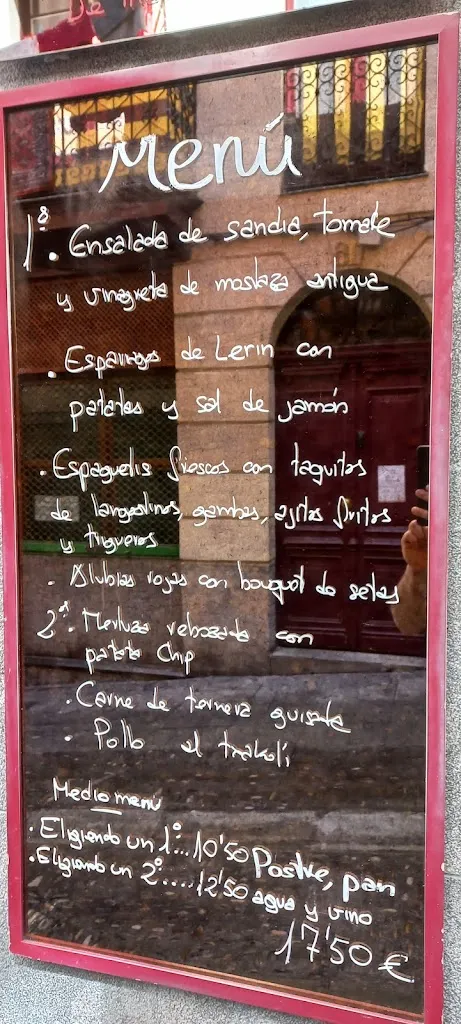 Menú
1º. Ensalada de sandia, tomate
y vinagreta de mostaza antigua
. Esparragos de Lerin con
patatas y sal de jamón
. Espaguetis frescos con taquitos
de langostinos, gambas, ajitos fritos
y trigueros
. Alubias rojas con bouquet de setas
2º. Merluza rebozada con
patata chip
. Carne de ternera guisada
. Pollo al txakolí
Medio menú
. Eligiendo un 1º... 10'50 Postre, pan
. Eligiendo un 2º..... 12'50 agua y vino
17'50 €